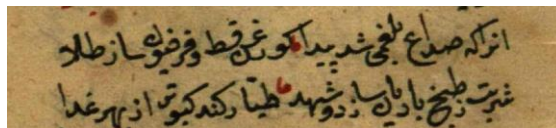 انرا که صداع بلغمی شد پیدا کو روغن قسط و فرفیون ساز طلا
شربت ز طبیخ بادیان سازد و شهد طیار کند کبوتر از بهر غدا